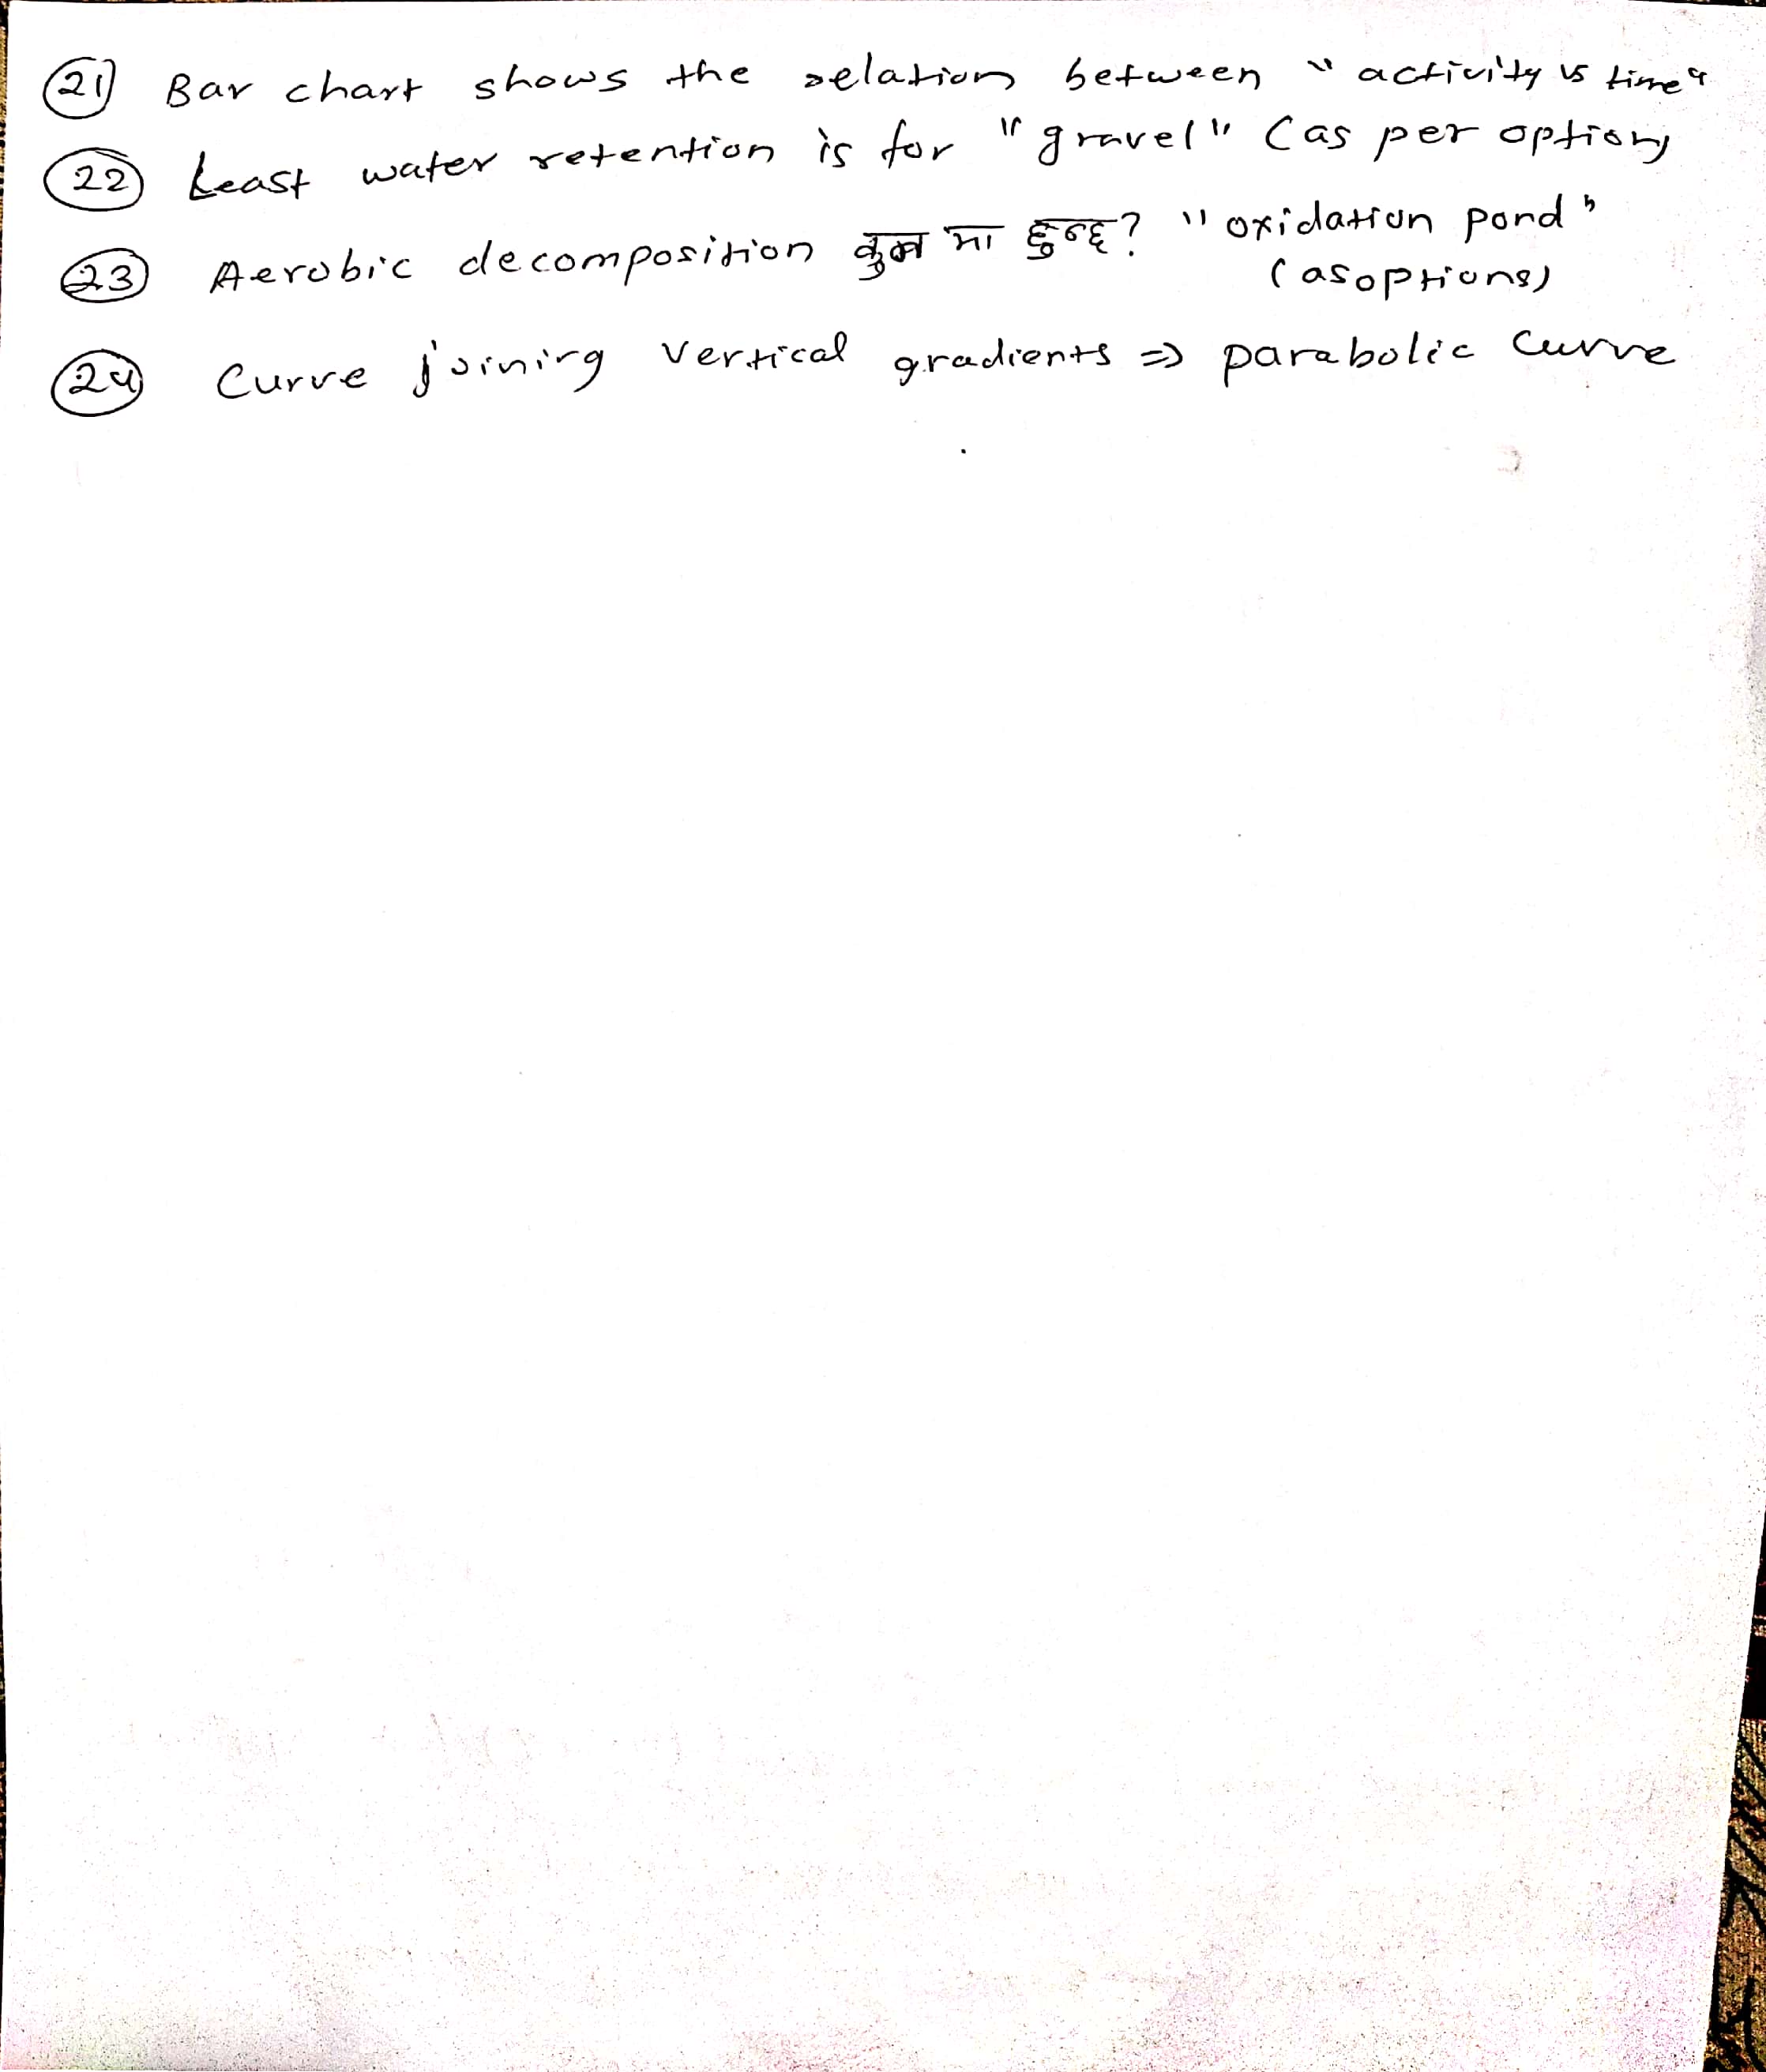 21 Bar chart shows the relation between "activity vs time"
22 Least water retention is for "gravel" (as per option)
23 Aerobic decomposition कुन मा हुन्छ? "oxidation pond"
(as options)
24 Curve joining vertical gradients ⇒ parabolic curve